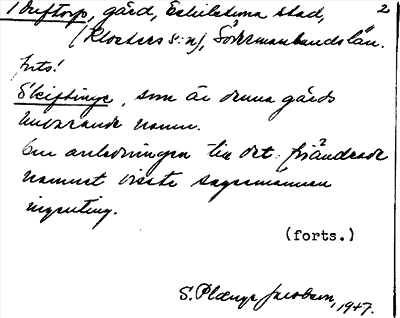 Driftorp, gård, Eskilstuna stad, 2
(Klosters s:n), Södermanlands län.
forts!
Skiftinge, som är denna gårds
nuvarande namn.
Om anledningen till det förändrade
namnet visste sagesmannen
ingenting.
(forts.)
S. Plænge Jacobson, 1947.